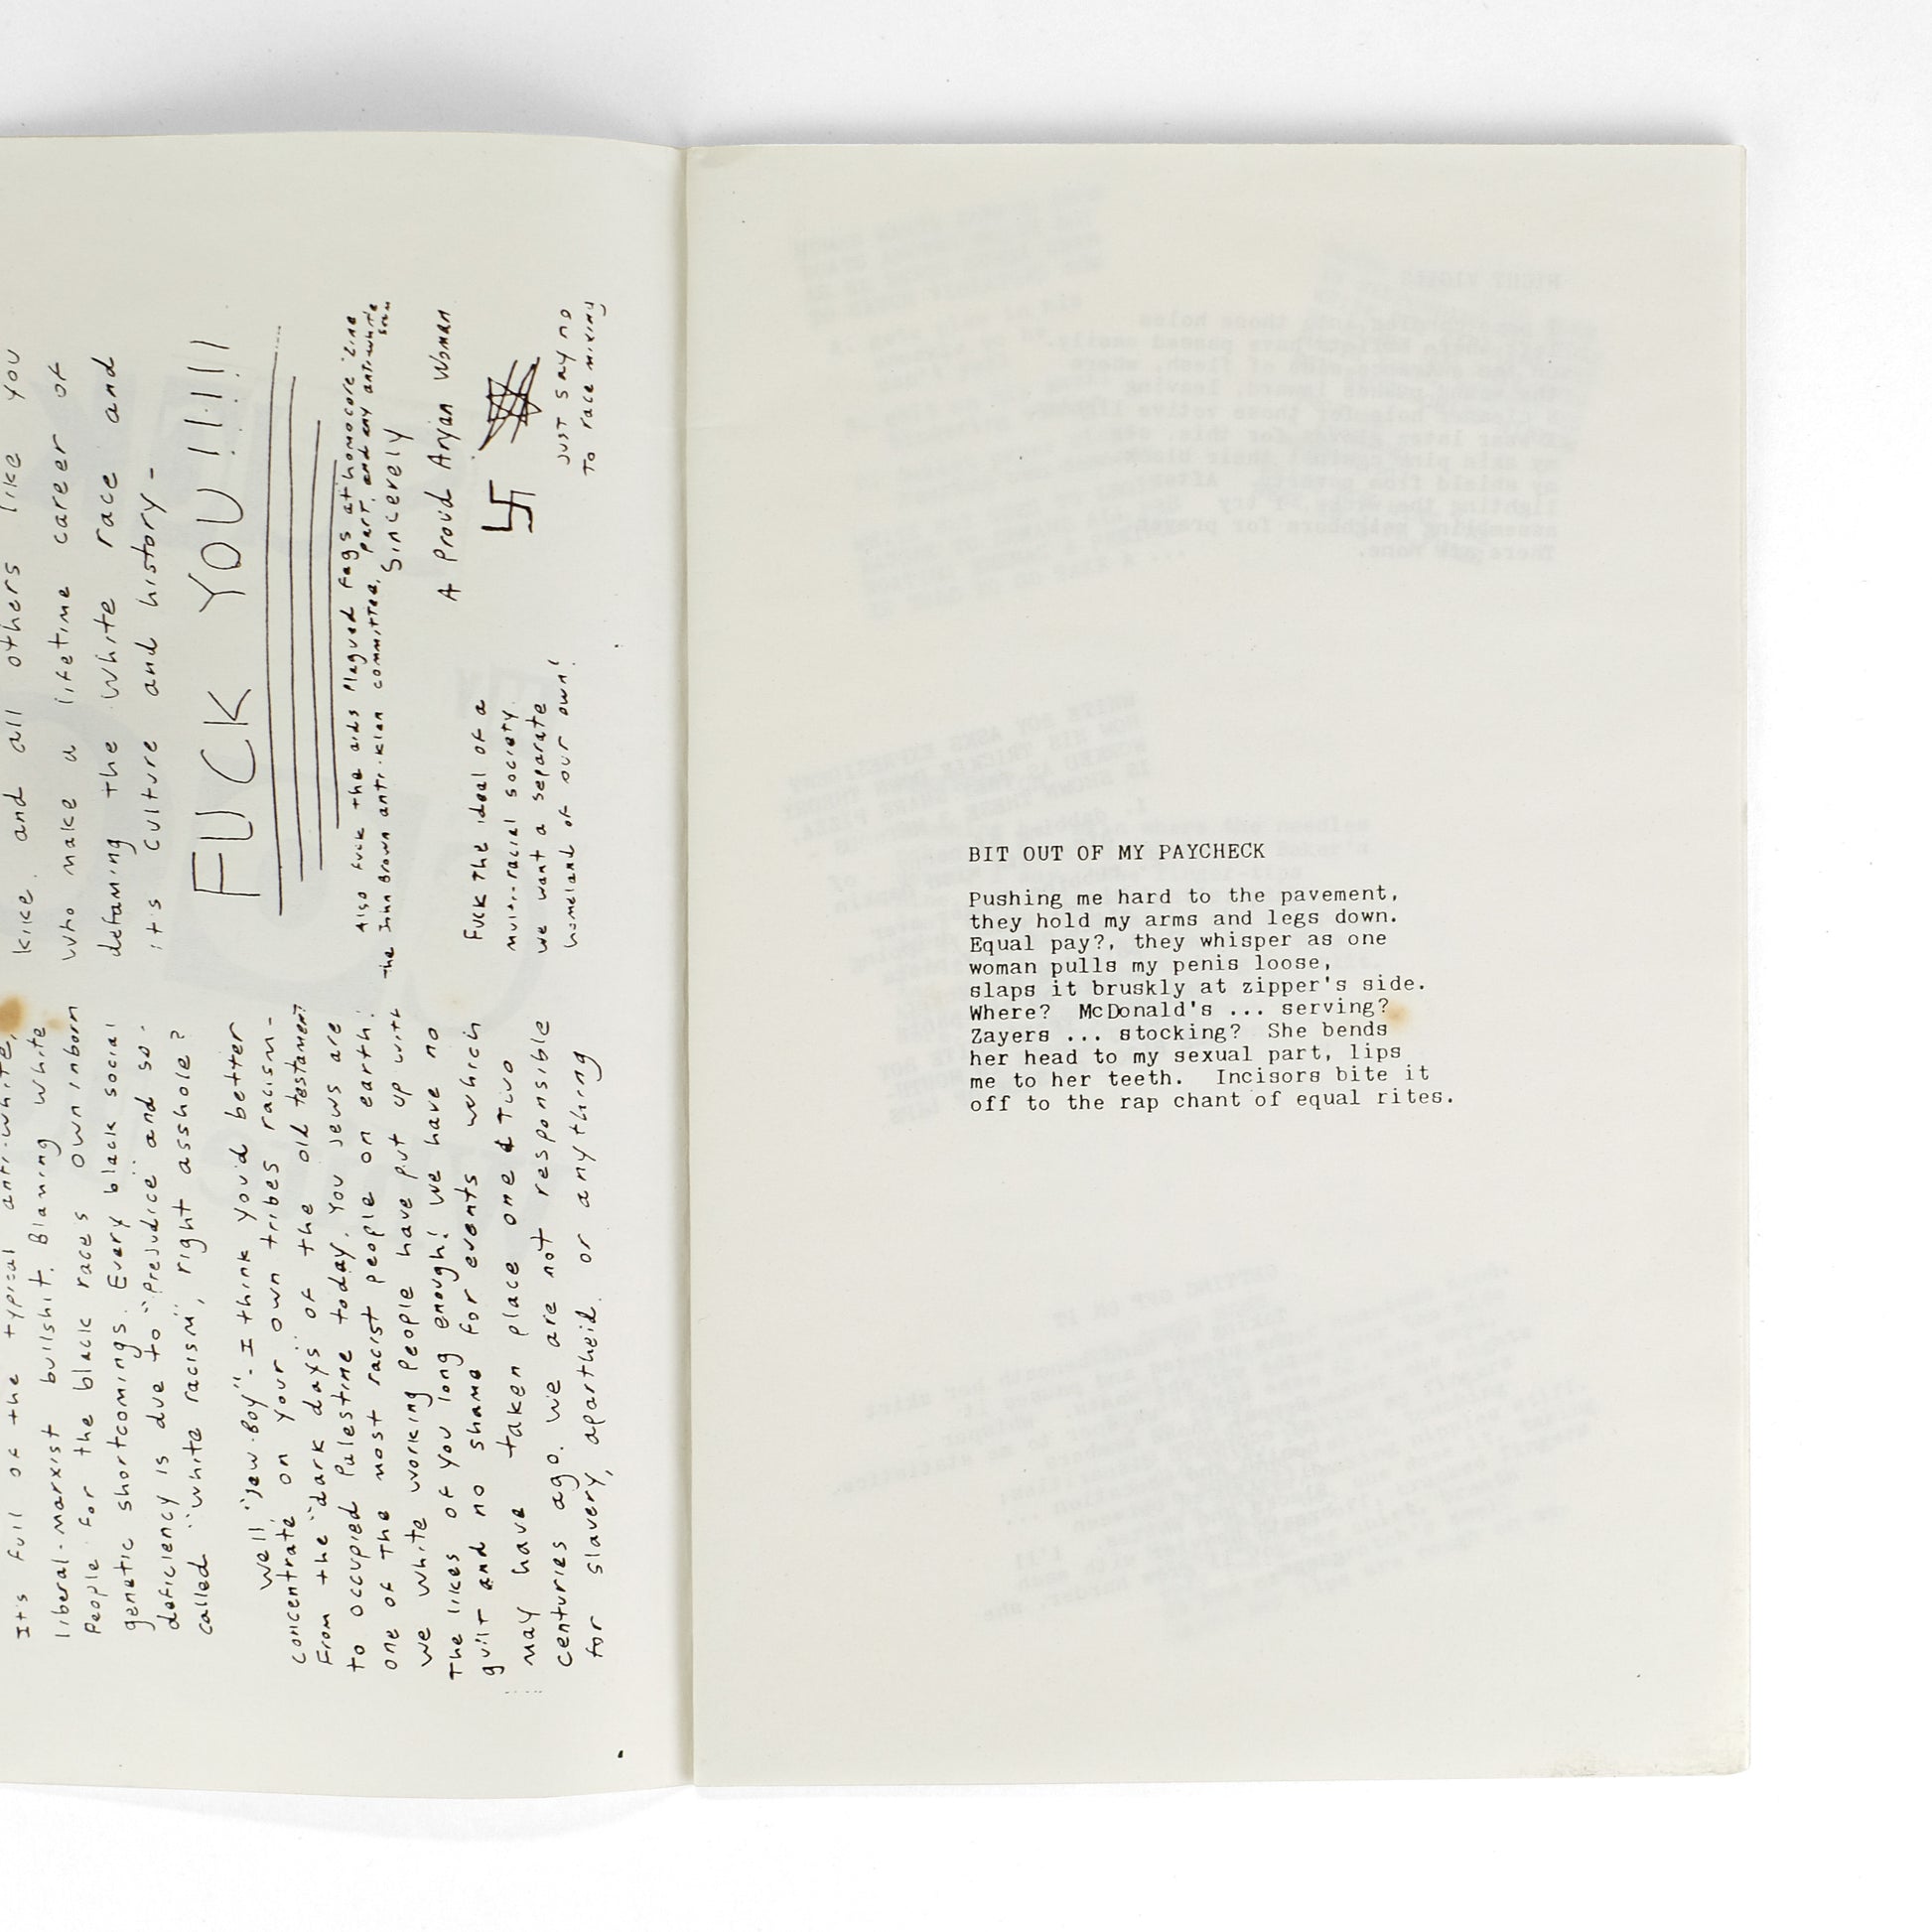 It's full of the typical anti-white,
liberal-marxist bullshit. Blaming white
people for the black races own inborn
genetic shortcomings. Every black social
deficiency is due to "prejudice" and so.
called "white racism", right asshole?
Well "Jew-Boy"- I think you'd better
concentrate on your own tribes racism-
From the "dark days" of the old testament
to occupied Palestine today. You Jews are
one of the most racist people on earth!
we white working people have put up with
The likes of you long enough! we have no
guilt and no shame for events which
may have taken place one & Two
centuries ago. We are not responsible
for slavery, apartheid. or anything
kike. and all others like you
who make a lifetime career of
defaming the white race and
it's culture and history-
FUCK YOU!!!!!
Also fuck the aids Plagued fags at homocore zine
the John Brown anti-klan committee, Part, and any anti-white scum
Sincerely
A Proud Aryan Woman
Fuck the ideal of a
multi-racial society.
we want a separate
homeland of our own!
JUST SAY NO
To race mixing
BIT OUT OF MY PAYCHECK
Pushing me hard to the pavement,
they hold my arms and legs down.
Equal pay?, they whisper as one
woman pulls my penis loose,
slaps it bruskly at zipper's side.
Where?  McDonald's ... serving?
Zayers ... stocking?  She bends
her head to my sexual part, lips
me to her teeth.  Incisors bite it
off to the rap chant of equal rites.